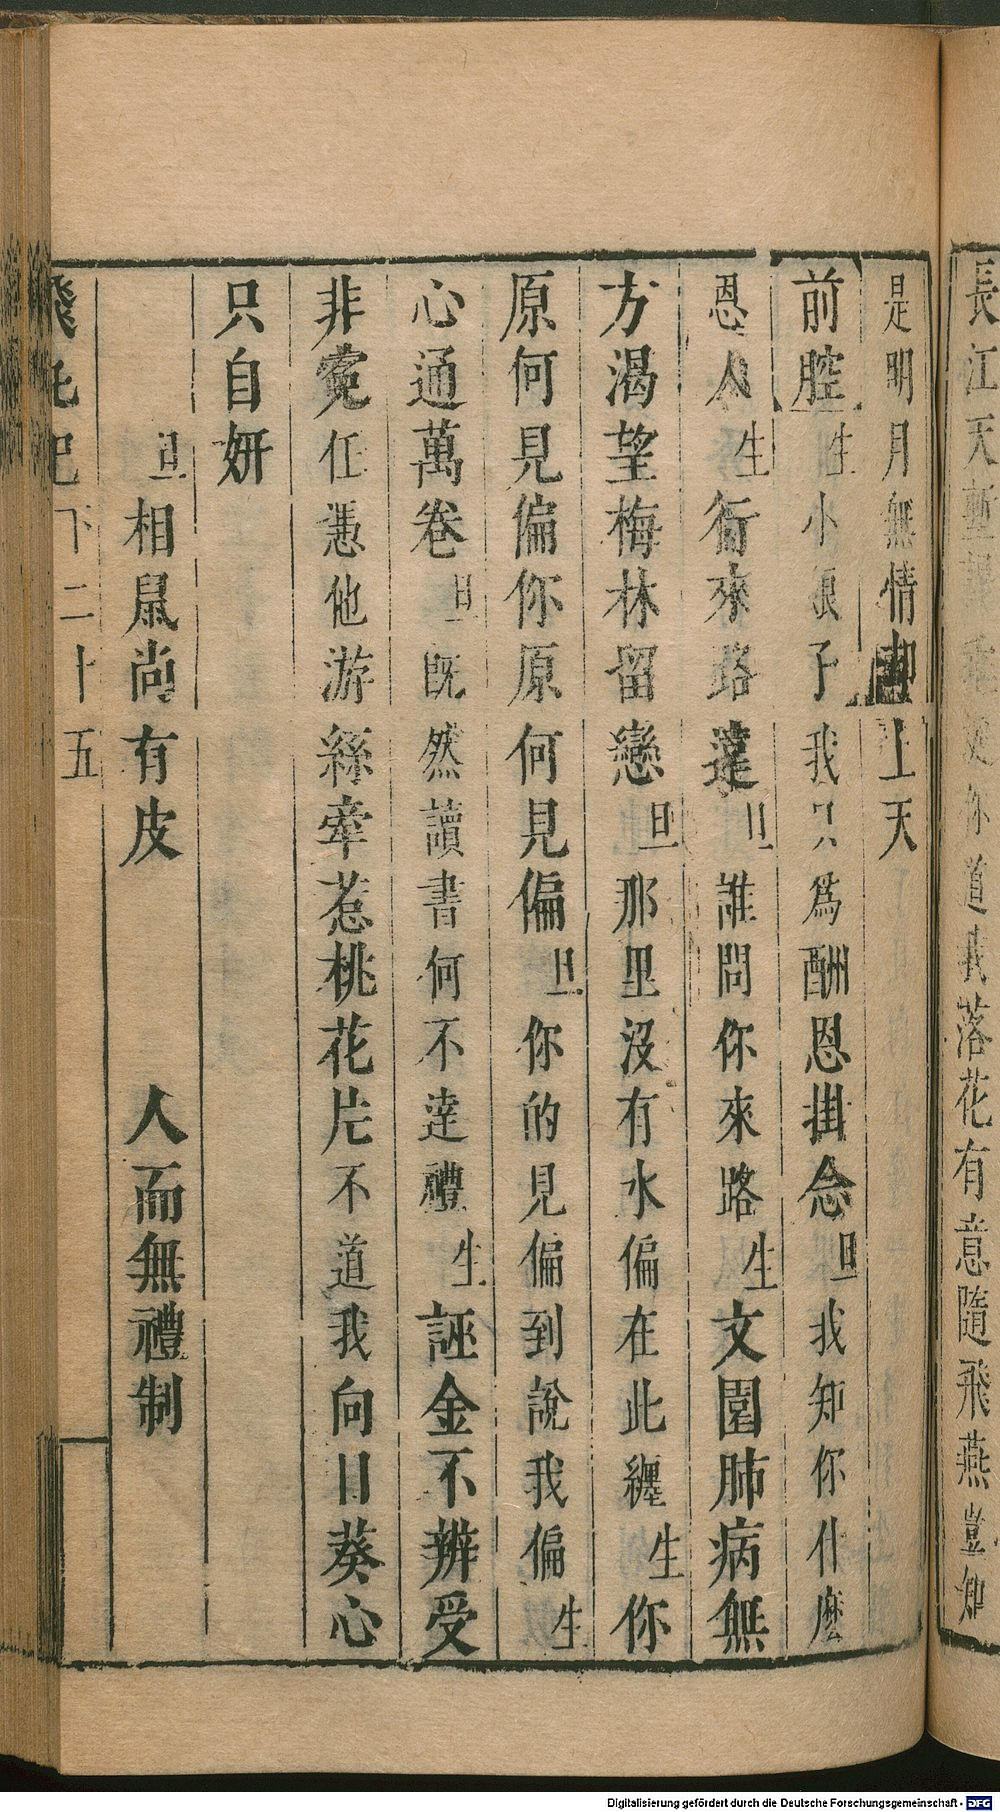 長江天塹 你道我落花有意隨飛燕豈知
是明月無情却上天
前腔生小娘子我只爲酬恩掛念旦我知你什麽
恩人生衕來路達旦誰問你來路生文園肺病無
方渴望梅林留戀旦那里沒有水偏在此纏生你
原何見偏你原何見偏旦你的見偏到說我偏生
心通萬卷旦旣然讀書何不達禮生誣金不辨受
非寃任憑他游絲牽惹桃花片不道我向日葵心
只自妍
旦相鼠尚有皮 人而無禮制
飛丸記 下 二十五
Digitalisierung gefördert durch die Deutsche Forschungsgemeinschaft - DFG